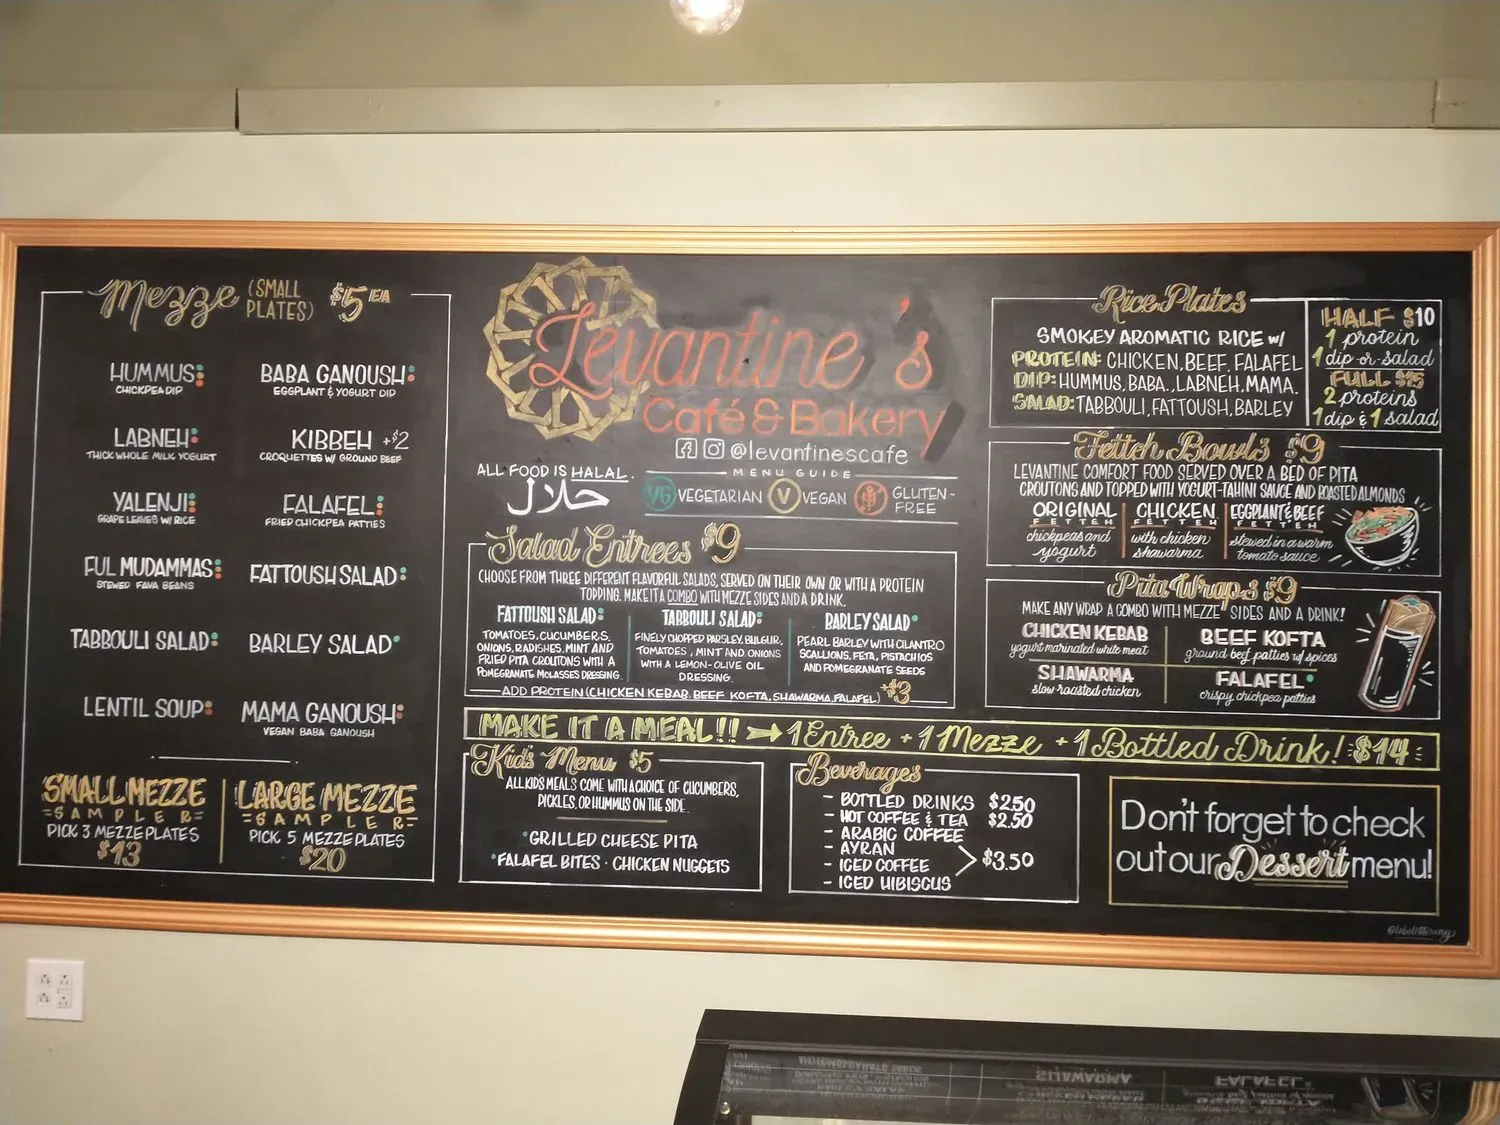 Mezze (SMALL PLATES) $5 EA
HUMMUS
CHICKPEA DIP
BABA GANOUSH
EGGPLANT & YOGURT DIP
LABNEH
THICK WHOLE MILK YOGURT
KIBBEH +$2
CROQUETTES W/ GROUND BEEF
YALENJI
GRAPE LEAVES W/ RICE
FALAFEL
FRIED CHICKPEA PATTIES
FUL MUDAMMAS
STEWED FAVA BEANS
FATTOUSH SALAD
TABBOULI SALAD
BARLEY SALAD
LENTIL SOUP
MAMA GANOUSH
VEGAN BABA GANOUSH
SMALL MEZZE
SAMPLER
PICK 3 MEZZE PLATES
$13
LARGE MEZZE
SAMPLER
PICK 5 MEZZE PLATES
$20
Levantine's
Café & Bakery
@levantinescafe
ALL FOOD IS HALAL.
حلال
MENU GUIDE
VG VEGETARIAN V VEGAN GLUTEN-
FREE
Salad Entrees $9
CHOOSE FROM THREE DIFFERENT FLAVORFUL SALADS, SERVED ON THEIR OWN OR WITH A PROTEIN
TOPPING. MAKE IT A COMBO WITH MEZZE SIDES AND A DRINK.
FATTOUSH SALAD
TOMATOES, CUCUMBERS,
ONIONS, RADISHES, MINT AND
FRIED PITA CROUTONS WITH A
POMEGRANATE MOLASSES DRESSING.
TABBOULI SALAD
FINELY CHOPPED PARSLEY, BULGUR,
TOMATOES, MINT AND ONIONS
WITH A LEMON-OLIVE OIL
DRESSING.
BARLEY SALAD
PEARL BARLEY WITH CILANTRO
SCALLIONS, FETA, PISTACHIOS
AND POMEGRANATE SEEDS
ADD PROTEIN (CHICKEN KEBAB, BEEF KOFTA, SHAWARMA, FALAFEL) +$3
MAKE IT A MEAL!! → 1 Entree + 1 Mezze + 1 Bottled Drink! $14
Kid's Menu $5
ALL KIDS MEALS COME WITH A CHOICE OF CUCUMBERS,
PICKLES, OR HUMMUS ON THE SIDE.
GRILLED CHEESE PITA
FALAFEL BITES · CHICKEN NUGGETS
Beverages
- BOTTLED DRINKS $2.50
- HOT COFFEE & TEA $2.50
- ARABIC COFFEE
- AYRAN
- ICED COFFEE
- ICED HIBISCUS
$3.50
Rice Plates
SMOKEY AROMATIC RICE W/
PROTEIN: CHICKEN, BEEF, FALAFEL
DIP: HUMMUS, BABA., LABNEH, MAMA.
SALAD: TABBOULI, FATTOUSH, BARLEY
HALF $10
1 protein
1 dip-or-salad
FULL $15
2 proteins
1 dip & 1 salad
Fetteh Bowls $9
LEVANTINE COMFORT FOOD SERVED OVER A BED OF PITA
CROUTONS AND TOPPED WITH YOGURT-TAHINI SAUCE AND ROASTED ALMONDS
ORIGINAL
FETTEH
chickpeas and
yogurt
CHICKEN
FETTEH
with chicken
shawarma
EGGPLANT & BEEF
FETTEH
stewed in a warm
tomato sauce
Pita Wraps $9
MAKE ANY WRAP A COMBO WITH MEZZE SIDES AND A DRINK!
CHICKEN KEBAB
yogurt marinated white meat
BEEF KOFTA
ground beef patties w/ spices
SHAWARMA
slow roasted chicken
FALAFEL
crispy chickpea patties
Don't forget to check
out our Dessert menu!